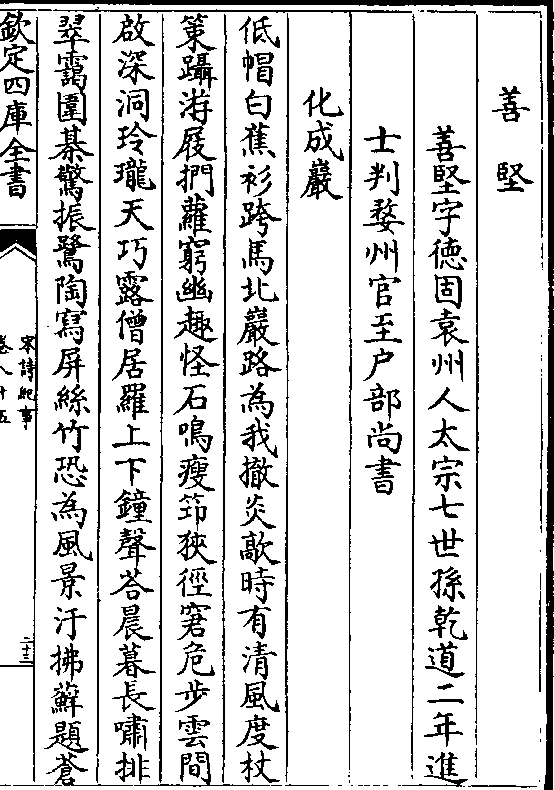 善堅
善堅字徳固袁州人太宗七世孫乾道二年進
士判婺州官至户部尚書
化成巖
低帽白蕉衫跨馬北巖路為我撤炎歊時有清風度杖
策躡游屐捫蘿窮幽趣怪石鳴瘦筇狹徑窘危步雲間
啟深洞玲瓏天巧露僧居羅上下鐘聲荅晨暮長嘯排
翠靄圍棊驚振鷺陶寫屏絲竹恐為風景汙拂蘚題蒼
欽定四庫全書
宋詩紀事
卷八十五
二十三